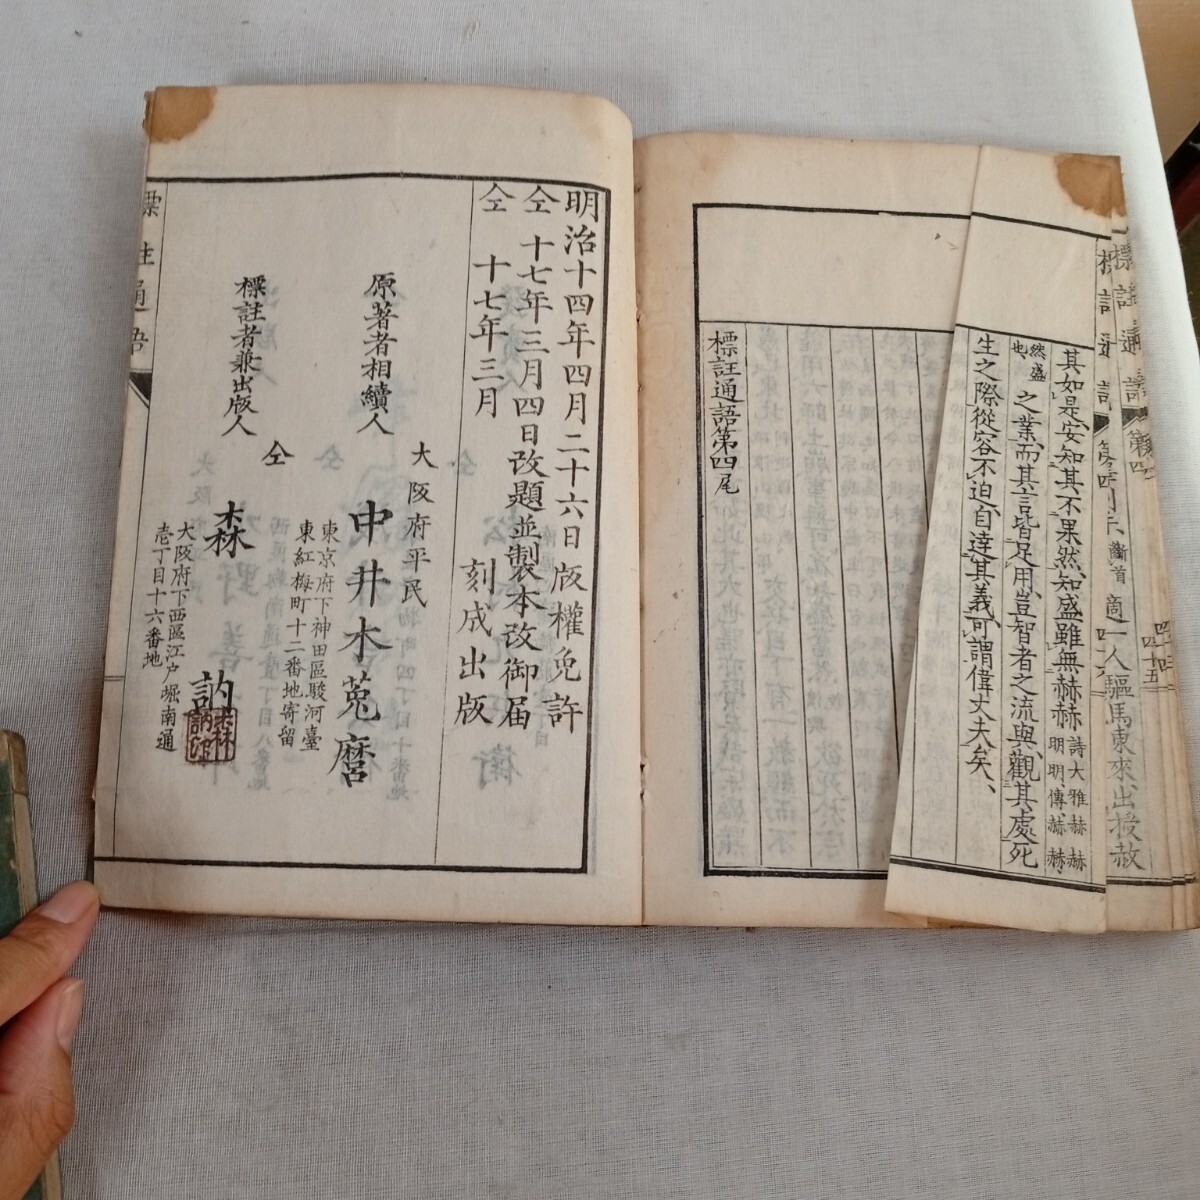 標註通語
第四
適一人驅馬東來出授赦
其如是安知其不果然知盛雖無赫赫
詩大雅赫赫
明明傳赫赫
然盛
也
之業而其言皆足用豈智者之流與觀其處死
生之際從容不迫自達其義可謂偉丈夫矣
標註通語第四尾
明治十四年四月二十六日版權免許
仝十七年三月四日改題並製本改御届
仝十七年三月刻成出版
大阪府平民
原著者相續人
中井木菟麿
東京府下神田區駿河臺
東紅梅町十二番地寄留
仝
標註者兼出版人
森訥
大阪府下西區江戸堀南通
壱丁目十六番地
標註通語